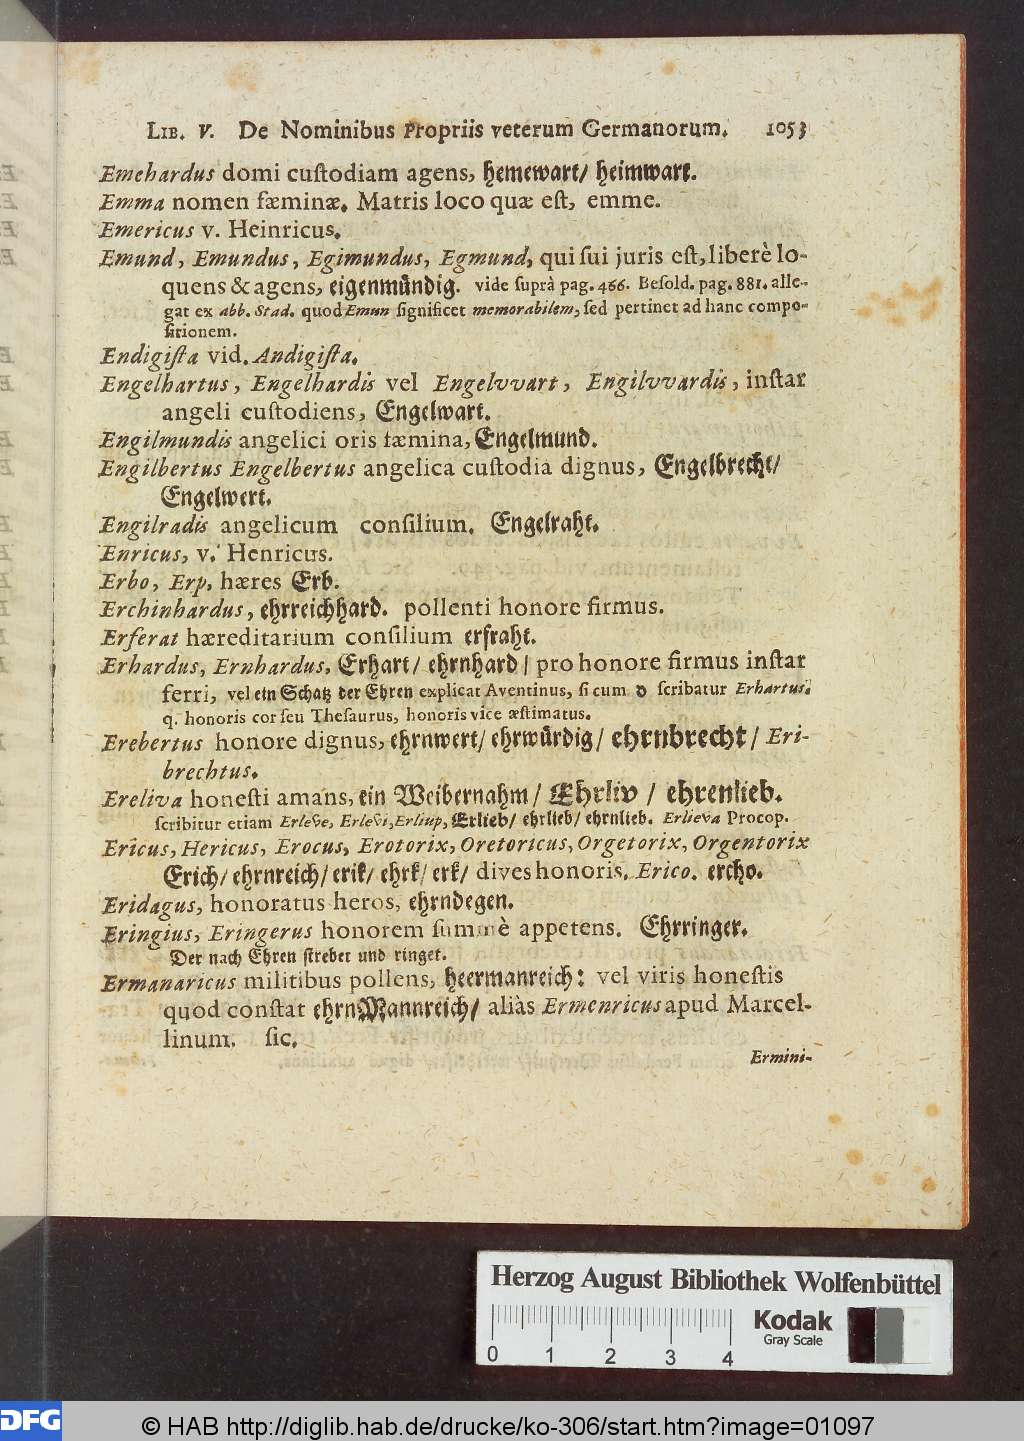 LIB. V. De Nominibus Propriis veterum Germanorum. 1053
Emehardus domi cuſtodiam agens, hemewart/ heimwart.
Emma nomen fæminæ. Matris loco quæ eſt, emme.
Emericus v. Heinricus.
Emund, Emundus, Egimundus, Egmund, qui ſui juris eſt, liberè lo-
quens & agens, eigenmündig. vide ſuprà pag. 466. Beſold. pag. 881. alle-
gat ex abb. Stad. quod Emun ſignificet memorabilem, ſed pertinet ad hanc compo-
ſitionem.
Endigiſta vid. Andigiſta.
Engelhartus, Engelhardis vel Engelvvart, Engilvvardis, inſtar
angeli cuſtodiens, Engelwart.
Engilmundis angelici oris fæmina, Engelmund.
Engilbertus Engelbertus angelica cuſtodia dignus, Engelbrecht/
Engelwert.
Engilradis angelicum conſilium. Engelraht.
Enricus, v. Henricus.
Erbo, Erp, hæres Erb.
Erchinhardus, ehrreichhard. pollenti honore firmus.
Erferat hæreditarium conſilium erfraht.
Erhardus, Ernhardus, Erhart/ ehrnhard/ pro honore firmus inſtar
ferri, vel ein Schatz der Ehren explicat Aventinus, ſi cum d ſcribatur Erhartus.
q. honoris cor ſeu Theſaurus, honoris vice æſtimatus.
Erebertus honore dignus, ehrnwert/ ehrwürdig/ ehrnbrecht/ Eri-
brechtus.
Ereliva honeſti amans, ein Weibernahm/ Ehrliv/ ehrenlieb.
ſcribitur etiam Erleve, Erlevi, Erliup, Erlieb/ ehrlieb/ ehrnlieb. Erlieva Procop.
Ericus, Hericus, Erocus, Erotorix, Oretoricus, Orgetorix, Orgentorix
Erich/ ehrnreich/ erik/ ehrk/ erk/ dives honoris. Erico. ercho.
Eridagus, honoratus heros, ehrndegen.
Eringius, Eringerus honorem ſummè appetens. Ehrringer.
Der nach Ehren ſtrebet und ringet.
Ermanaricus militibus pollens, heermanreich: vel viris honeſtis
quod conſtat ehrnMannreich/ aliàs Ermenricus apud Marcel-
linum. ſic.
Ermini-
Herzog August Bibliothek Wolfenbüttel
Kodak
Gray Scale
0 1 2 3 4
DFG © HAB http://diglib.hab.de/drucke/ko-306/start.htm?image=01097